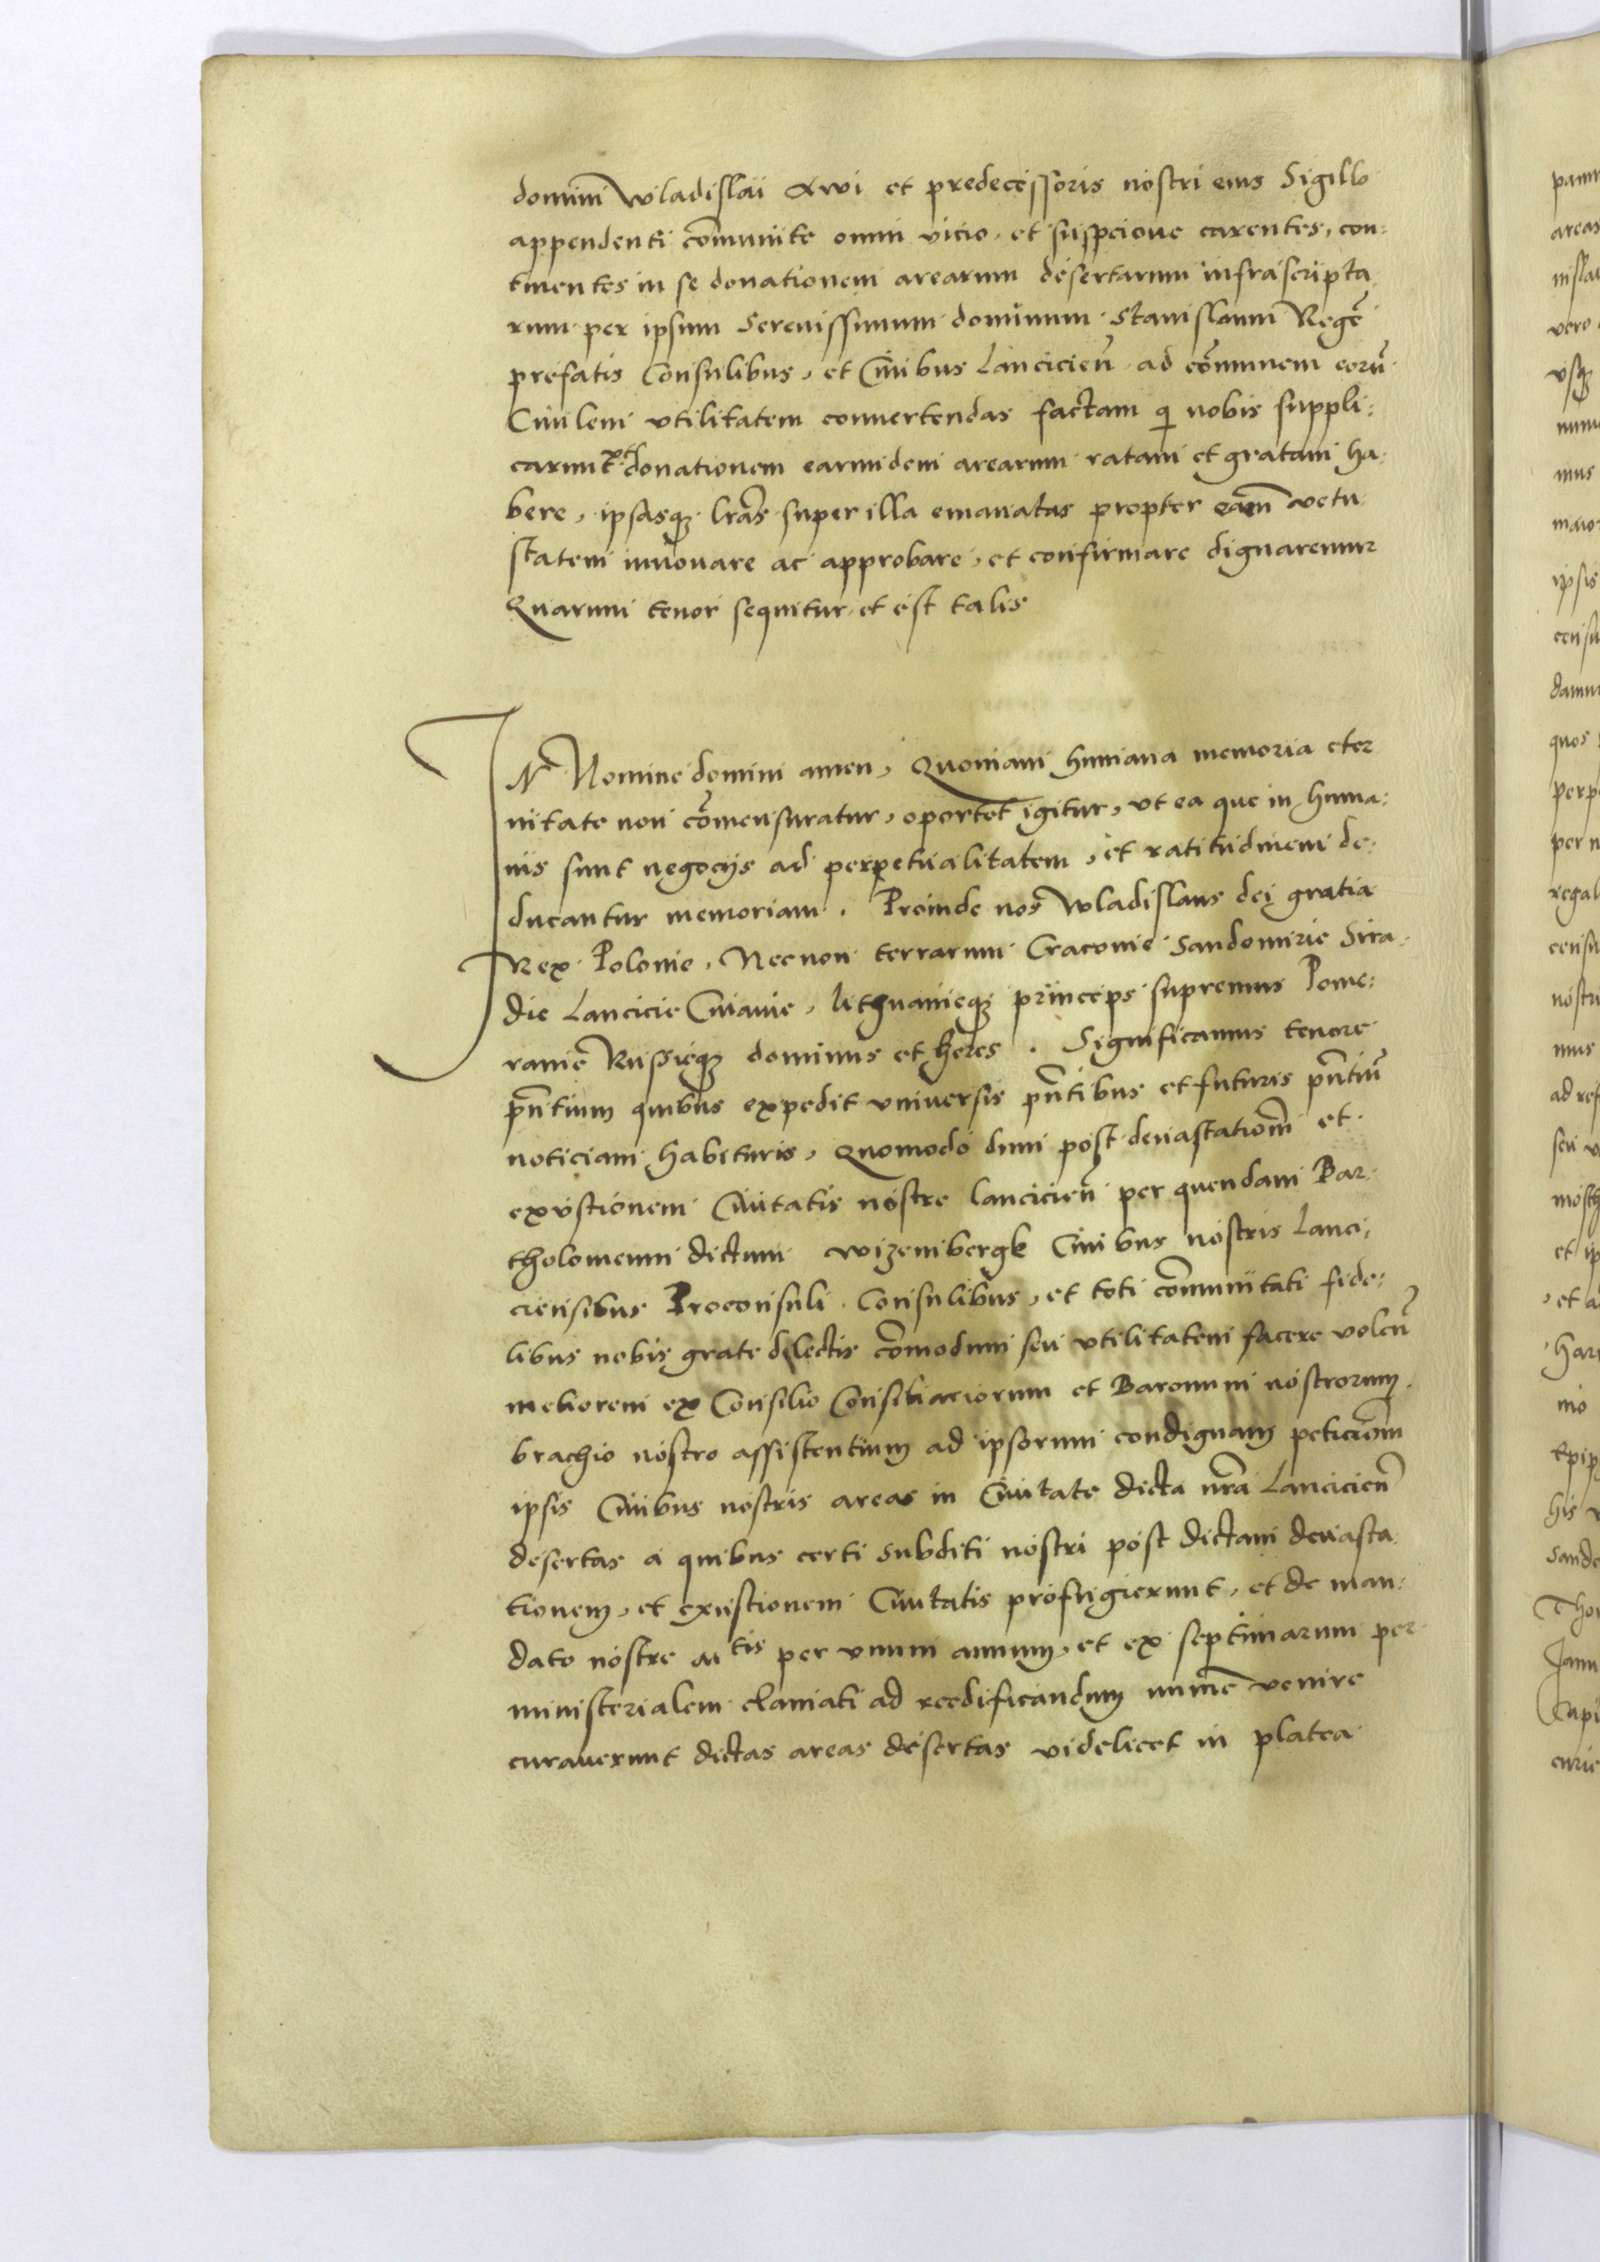 dominĩ Wladislai Awi et predecessoris nostri eius Sigillo
appendenti cõmunite omni vicio, et suspcione carentes, con:
tinentes in se donationem arearum desertarum infrascripta
rum per ipsum Serenissimum dominum Stanislaum Regẽ
prefatis Consulibus, et Ciuibus Lanciciẽn ad cõmmunem eorũ
Ciuilem vtilitatem conuertendas factam qi nobis suppli:
carunt donationem earundem arearum ratam et gratam ha
bere, ipsasqȝ lrãs super illa emanatas propter eam̃ vetu
statem innouare ac approbare, et confirmare dignaremur
Quarum tenor sequitur, et est talis
IN Nomine domini amen, Quoniam humana memoria eter
nitate non cõmensuratur, oportet igitur, vt ea que in huma:
nis sunt negocijs ad perpetualitatem, et ratitudinem de:
ducantur memoriam. Proinde nos Wladislaus dei gratia
Rex Polonie, Necnon terrarum Cracouie Sandomirie Sira
die Lancicie Cuiauie, lithuanieqȝ princeps supremus Pome:
ranie Russieqȝ dominus et heres. Significamus tenore
pñtium quibus expedit vniuersis pñtibus et futuris pñtiũ
noticiam habituris, Quomodo dum post deuastatiom̃ et
exvstionem Ciuitatis nostre lanciciẽn per quendam Bar
tholomeum dictum Wizembergk Ciuibus nostris Lanci,
ciensibus Proconsuli Consulibus, et toti cõmmunitati fide:
libus nobis grate dilectis cõmodum seu vtilitatem facere volẽn
meliorem ex Consilio Consiliariorum et Baronum nostrorum
brachio nostro assistentium ad ipsorum condignam peticiom̃
ipsis Ciuibus nostris areas in Ciuitate dicta nrã Lanciciẽn
desertas a quibus certi subditi nostri post dictam deuasta
tionem, et exustionem Ciuitatis profugierunt, et de man:
dato nostre Mtis per vnum annum, et ex septimarum per
ministerialem clamati ad reedificandum minime venire
curauerunt dictas areas desertas videlicet in platea